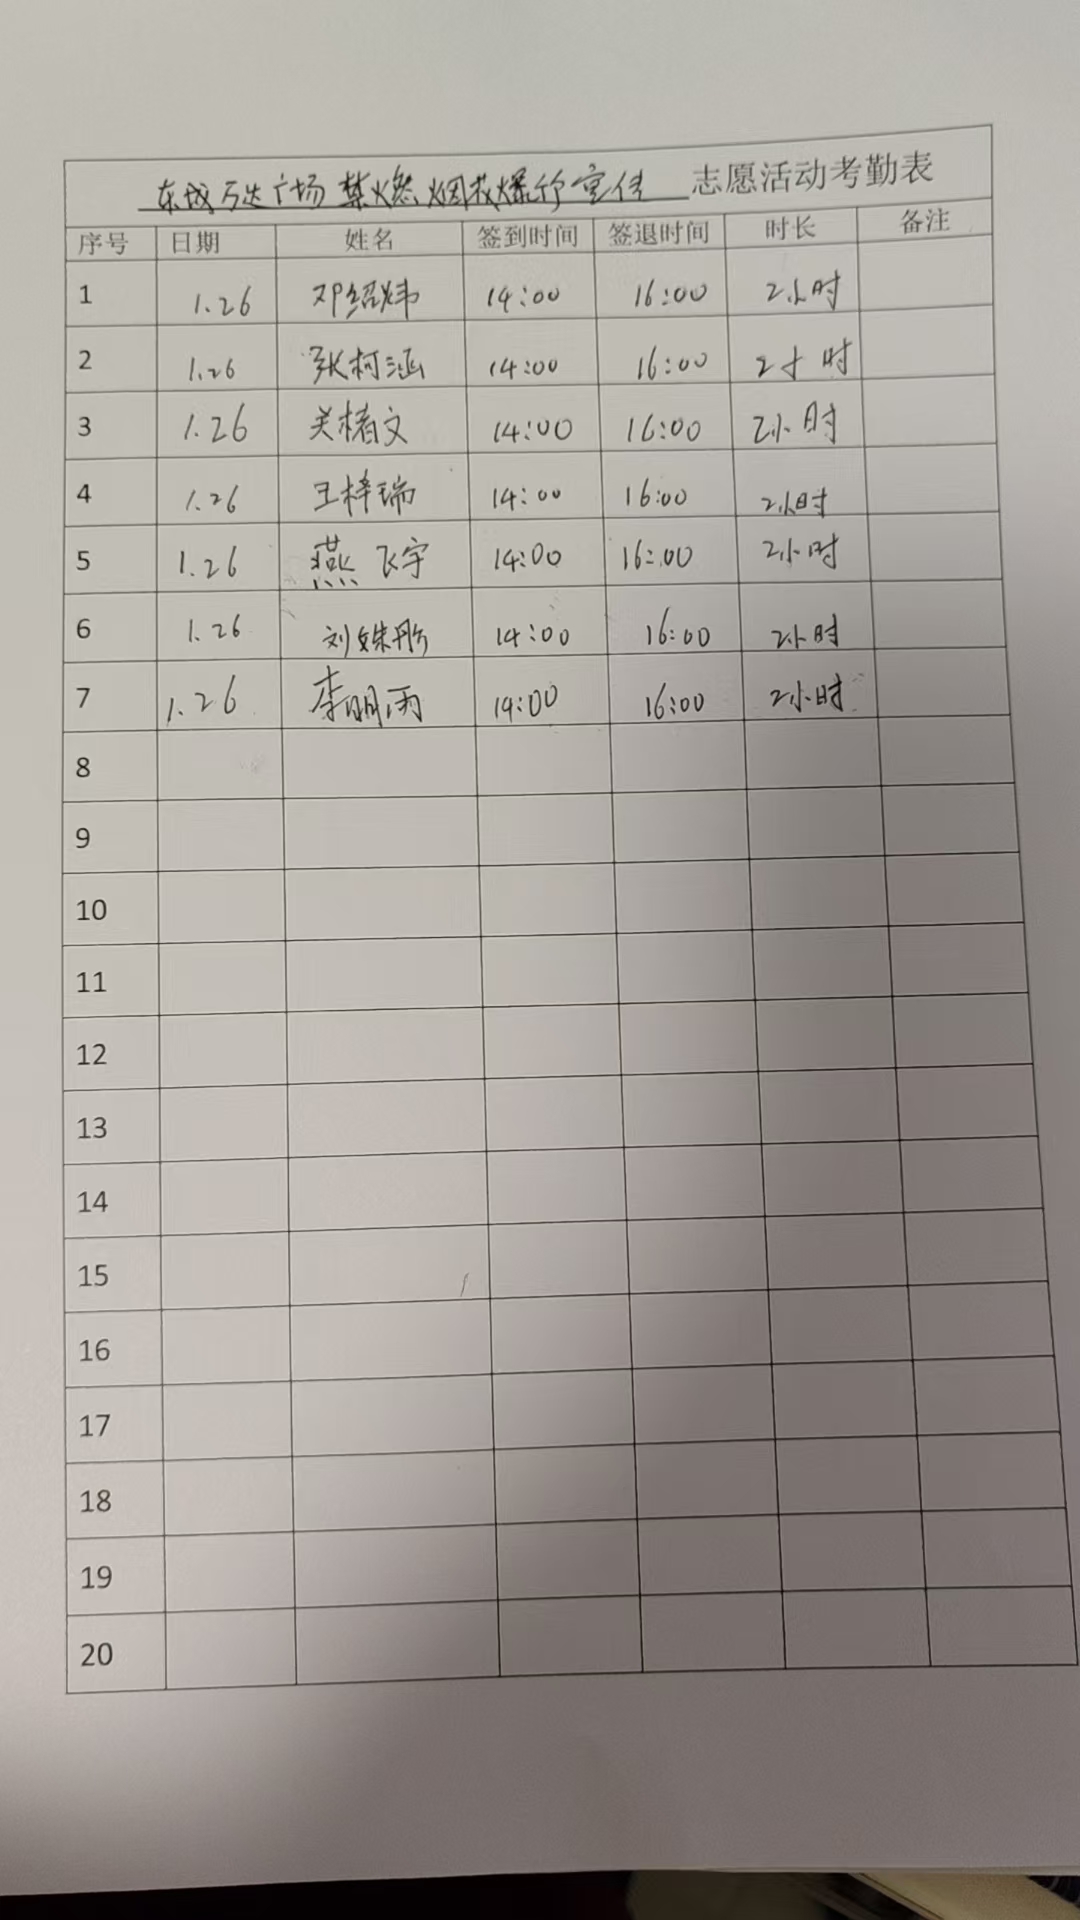 东城万达广场 禁燃烟花爆竹宣传 志愿活动考勤表
序号 日期 姓名 签到时间 签退时间 时长 备注
1 1.26 邓绍炜 14:00 16:00 2小时
2 1.26 张柯涵 14:00 16:00 2小时
3 1.26 关楮文 14:00 16:00 2小时
4 1.26 王梓瑞 14:00 16:00 2小时
5 1.26 燕飞宇 14:00 16:00 2小时
6 1.26 刘姝彤 14:00 16:00 2小时
7 1.26 李明雨 14:00 16:00 2小时
8
9
10
11
12
13
14
15
16
17
18
19
20